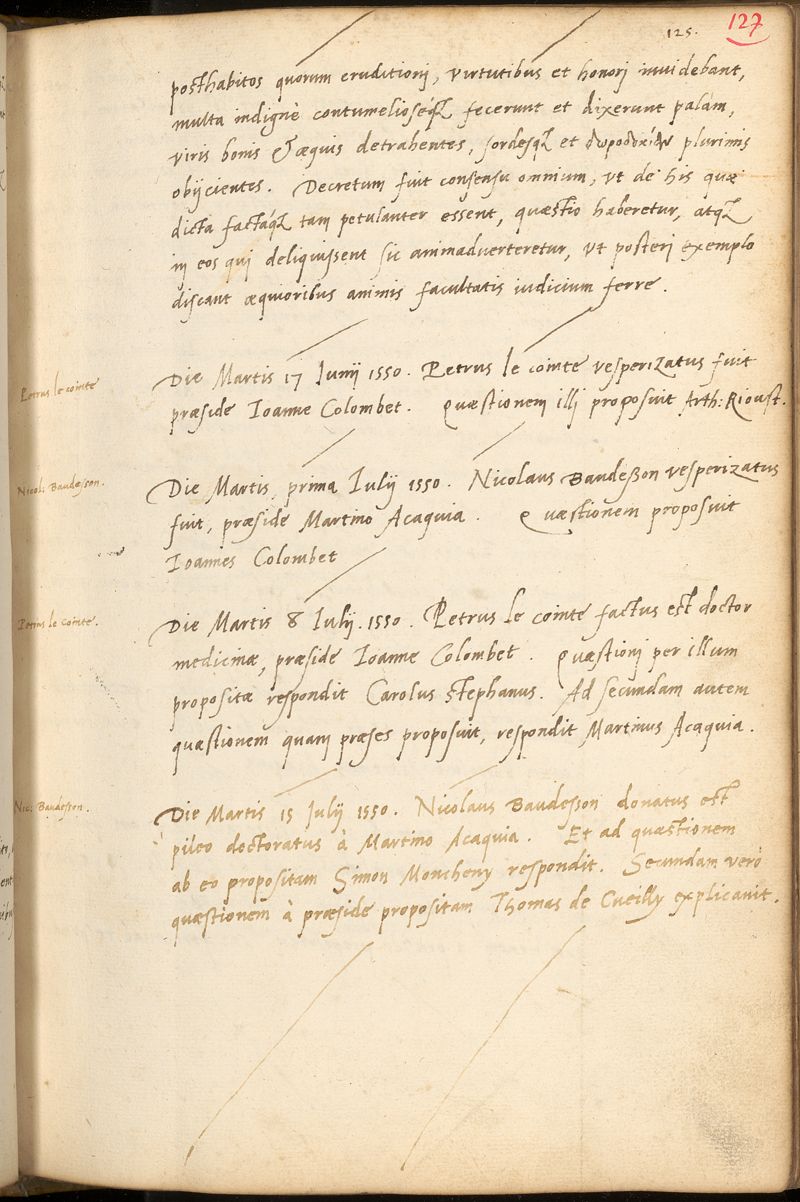 125.
127
posthabitos quorum eruditionj, virtutibus et honorj inuidebant,
multa indignè contumelioséq́ꝫ fecerunt et dixerunt palàm,
viris bonis & æquis detrahentes, sordesq́ꝫ et δωροδοκίαν plurimis
obijcientes. Decretum fuit consensu omnium, vt de his quæ
dicta factáq́ꝫ tam petulanter essent, quæstio haberetur, atq́ꝫ
in eos qui deliquissent sic animaduerteretur, vt posterj exemplo
discant æquioribus animis facultatis iudicium ferre.
Petrus le cointe
Die Martis 17 Junij 1550. Petrus le cointe vesperizatus fuit
præside Ioanne Colombet. Quæstionem illj proposuit Arth: Rioust.
Nicol: Baudesson.
Die Martis, prima Iulij 1550. Nicolaus Baudeßon vesperizatus
fuit, præside Martino Acaquia. Quæstionem proposuit
Ioannes Colombet
Petrus le Cointe.
Die Martis 8 Iulij. 1550. Petrus le cointe factus est doctor
medicinæ, præside Ioanne Colombet. Quæstionj per illum
propositæ respondit Carolus stephanus. Ad secundam autem
quæstionem quam præses proposuit, respondit Martinus Acaquia.
Nic: Baudesson.
Die Martis 15 Julij 1550. Nicolaus Baudesson donatus est
pileo doctoratus à Martino Acaquia. Et ad quæstionem
ab eo propositam Simon Moncheny respondit. Secundam verò
quæstionem à præside propositam Thomas de Cueilly explicauit.